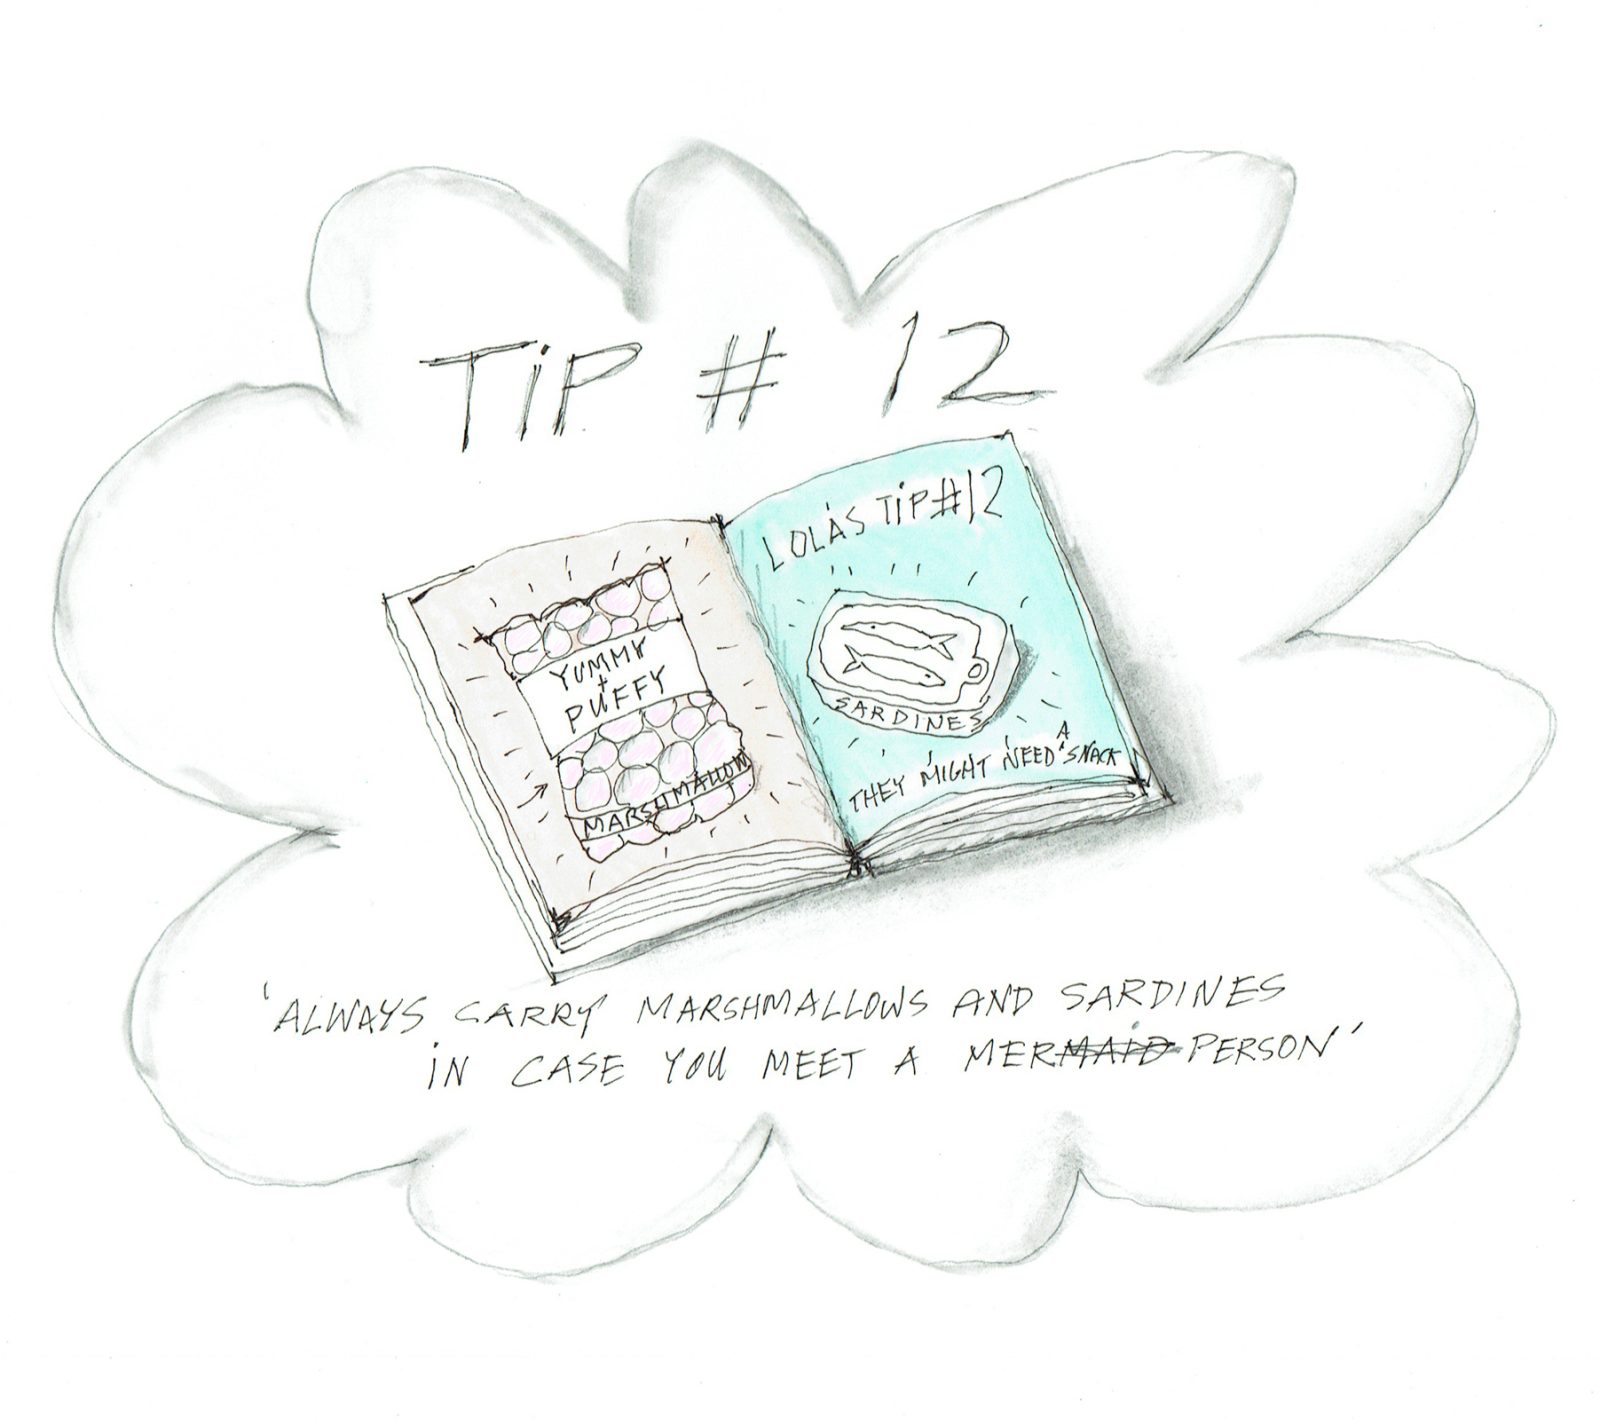 TiP # 12
YUMMY
+
PUFFY
MARSHMALLOW
LOLA'S TiP #12
SARDINES
THEY MIGHT NEED A SNACK
'ALWAYS CARRY MARSHMALLOWS AND SARDINES
iN CASE YOU MEET A MERMAiD PERSON'